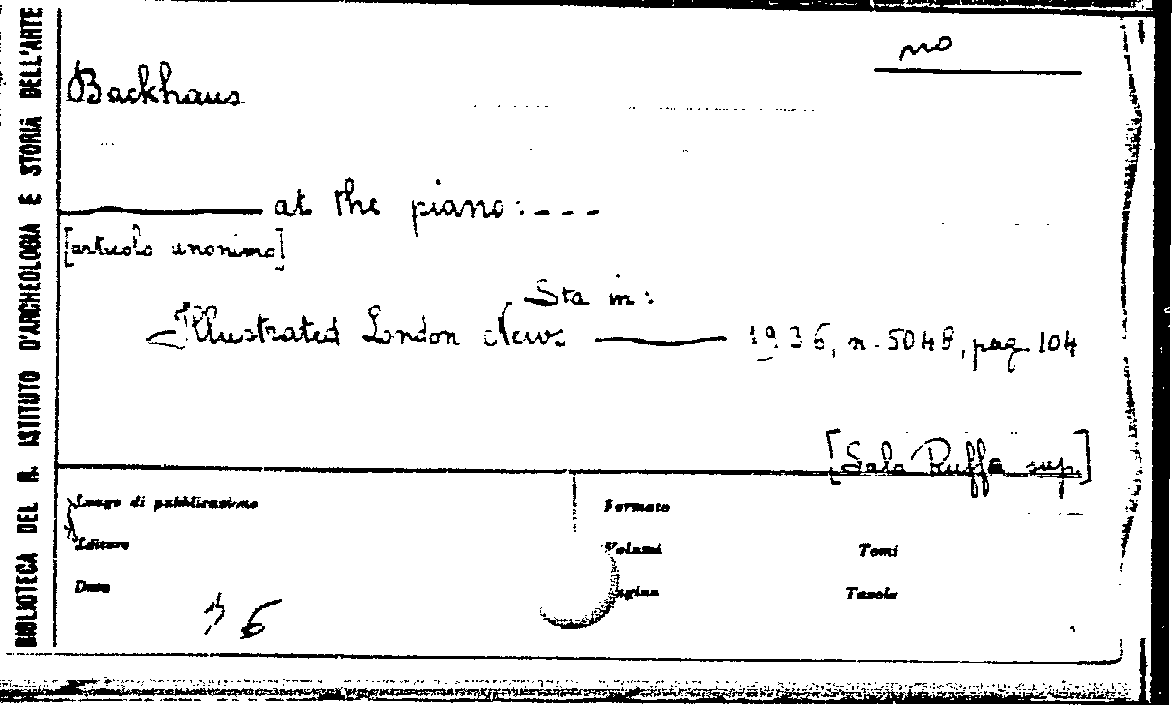 BIBLIOTECA DEL R. ISTITUTO D'ARCHEOLOGIA E STORIA DELL'ARTE
no
Backhaus
——— at the piano: - - -
[articolo anonimo]
Sta in:
Illustrated London News ——— 1936, n. 5048, pag. 104
[Sala Ruffa sup.]
Luogo di pubblicazione
Formato
Editore
Volumi
Tomi
Data
Pagine
Tavole